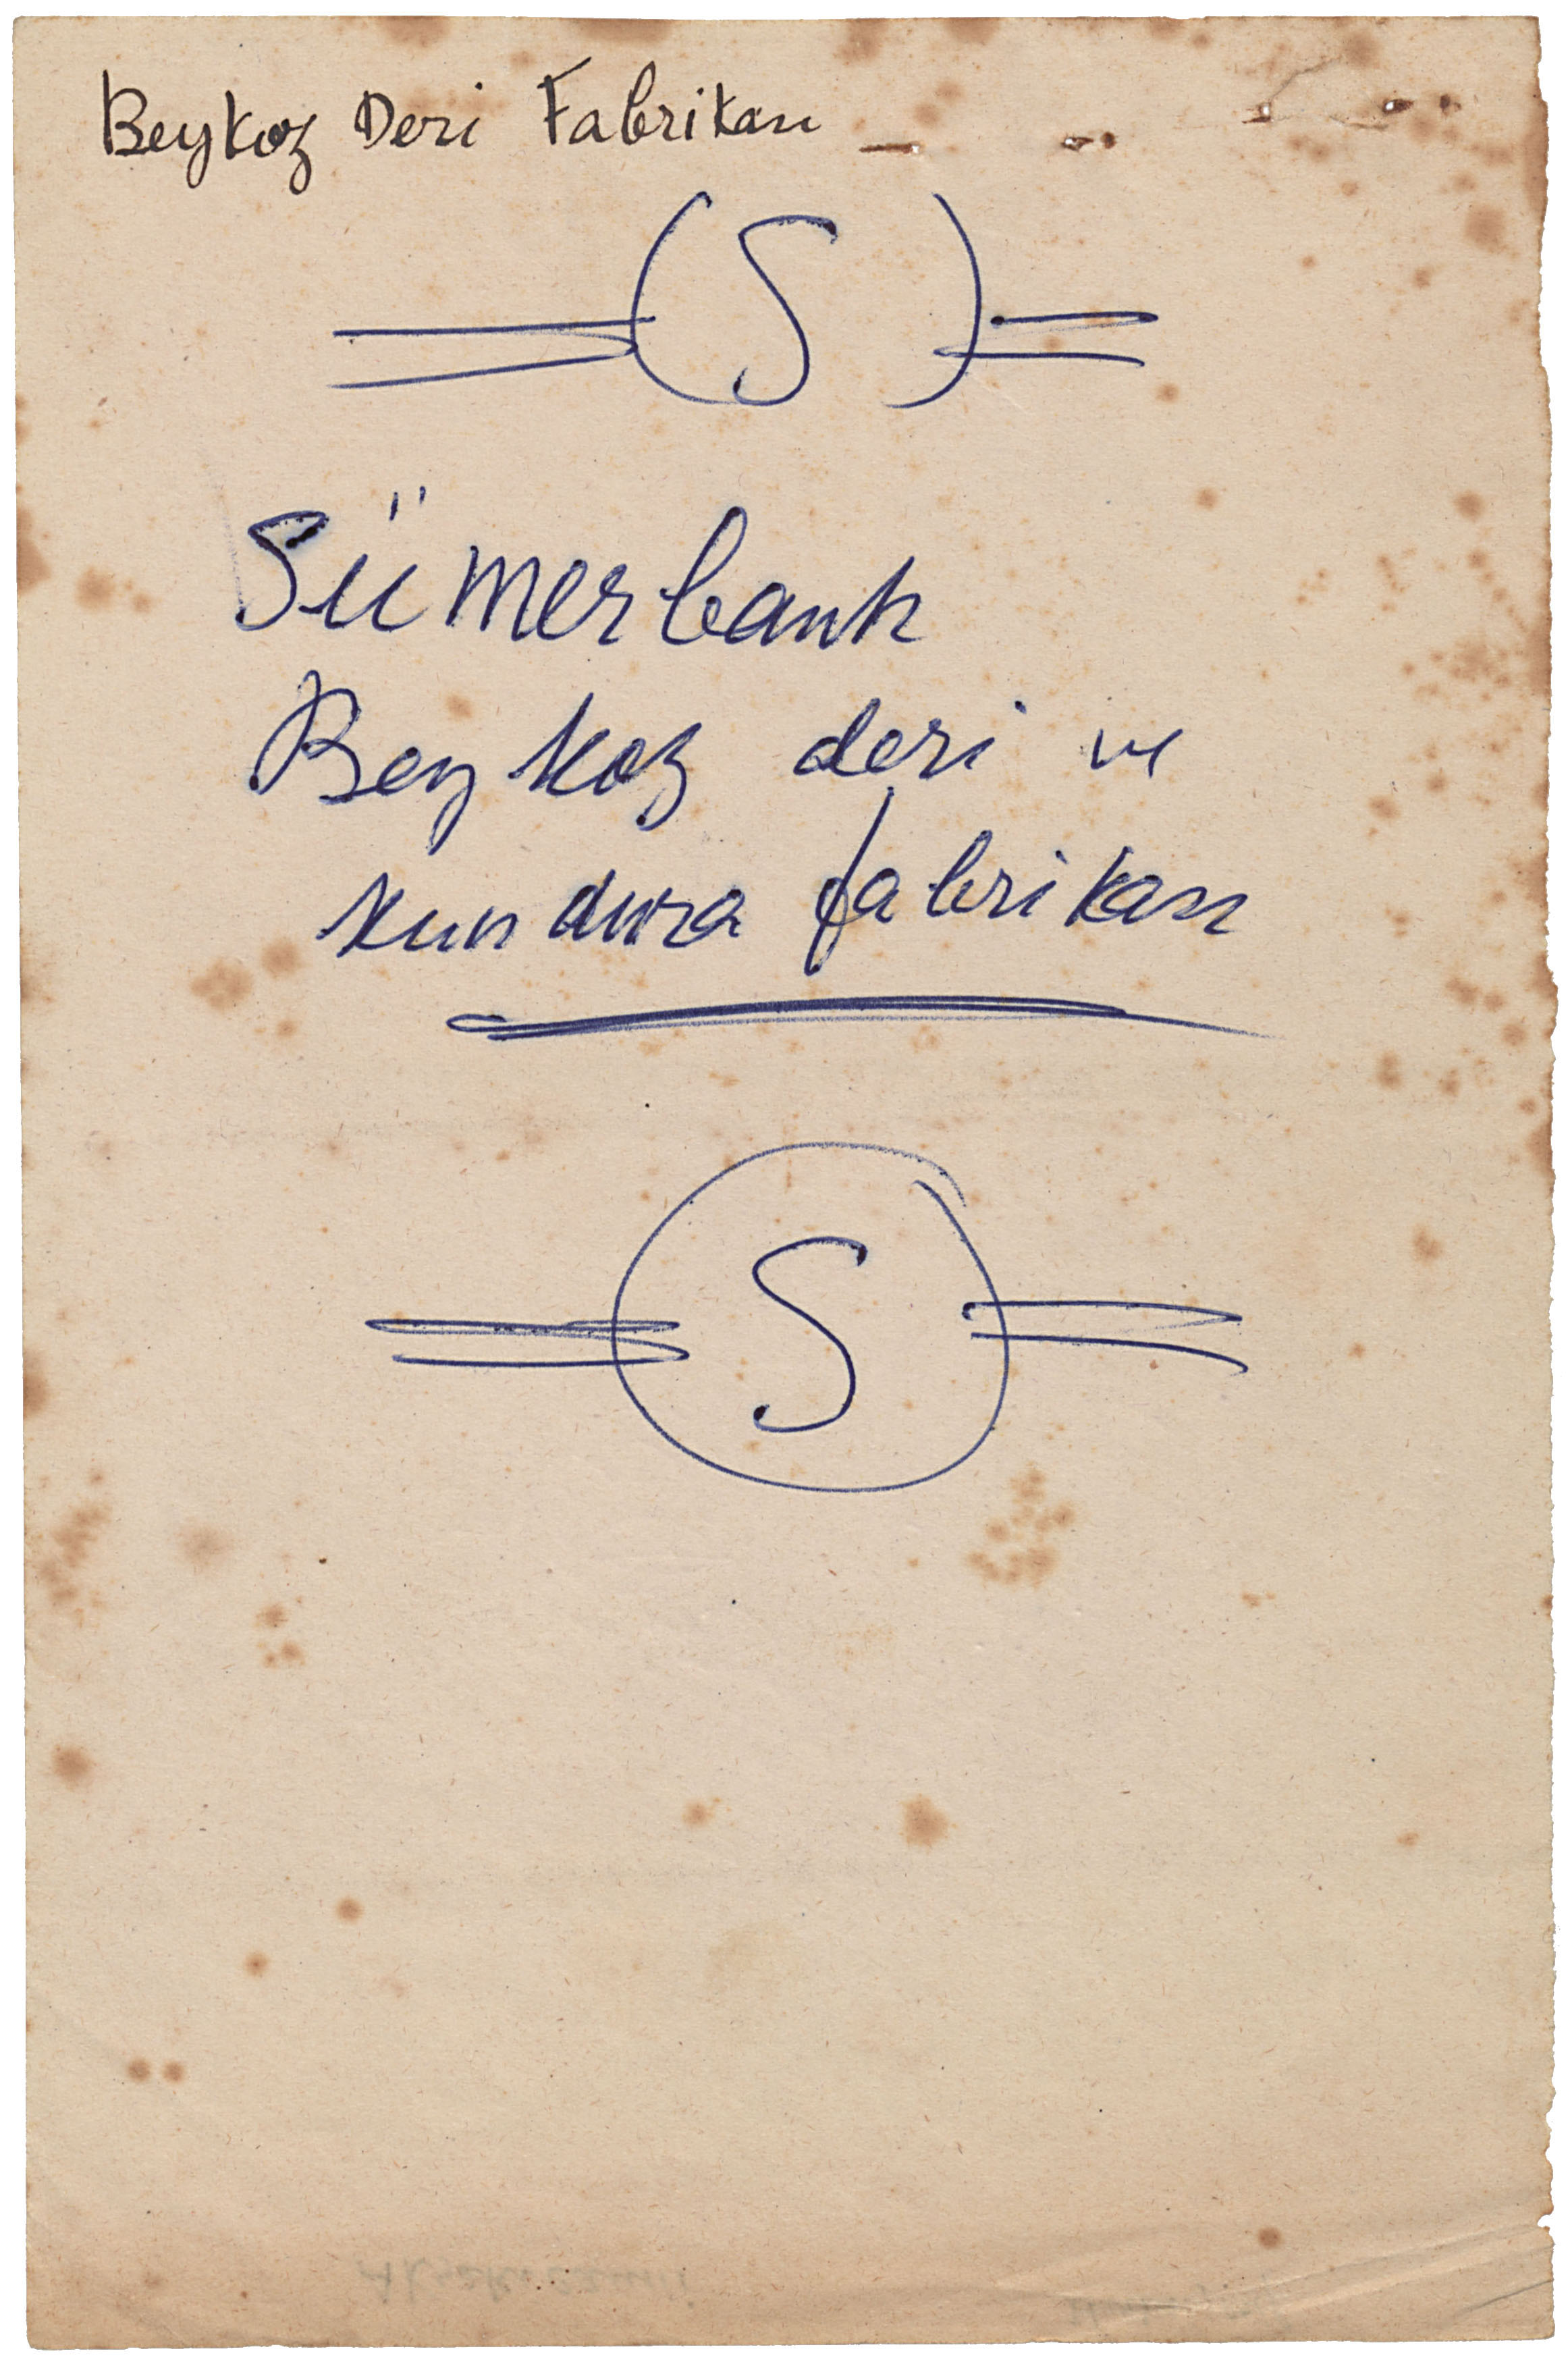 Beykoz Deri Fabrikası
S
Sümerbank
Beykoz deri ve
kundura fabrikası
S